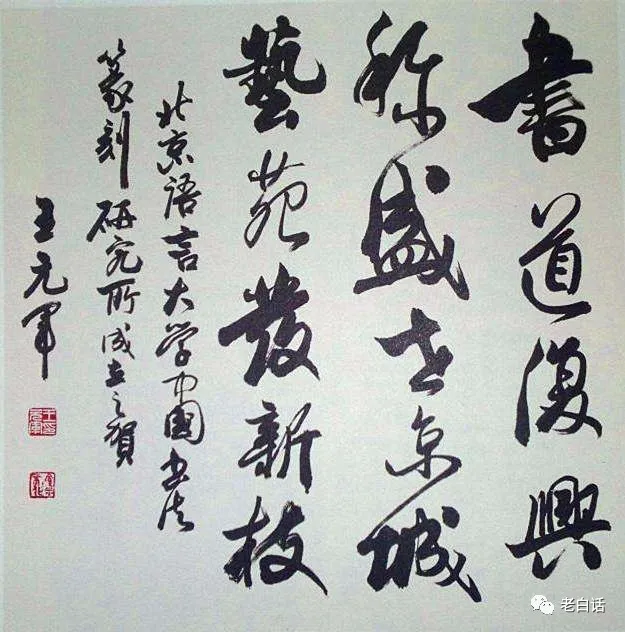 書道復興
称盛世京城
藝苑發新枝
北京语言大学中国书法
篆刻研究所成立之賀
王元军
老白话